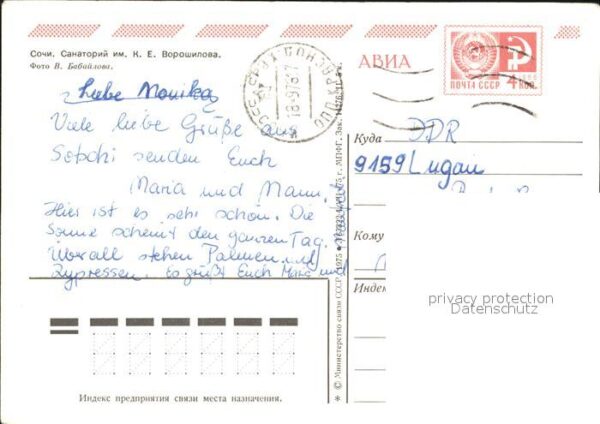 Сочи. Санаторий им. К. Е. Ворошилова.
Фото В. Бабайлова.
АВИА
ПОЧТА СССР 4 КОП.
Liebe Monika
Viele liebe Grüße aus
Sotschi senden Euch
Maria und Mann.
Hier ist es sehr schön. Die
Sonne scheint den ganzen Tag.
Überall stehen Palmen und
Zypressen. Es grüßt Euch Maria und
Куда DDR
9159 Lugau
Кому
Индекс
privacy protection
Datenschutz
Индекс предприятия связи места назначения.
© Министерство связи СССР. 1975